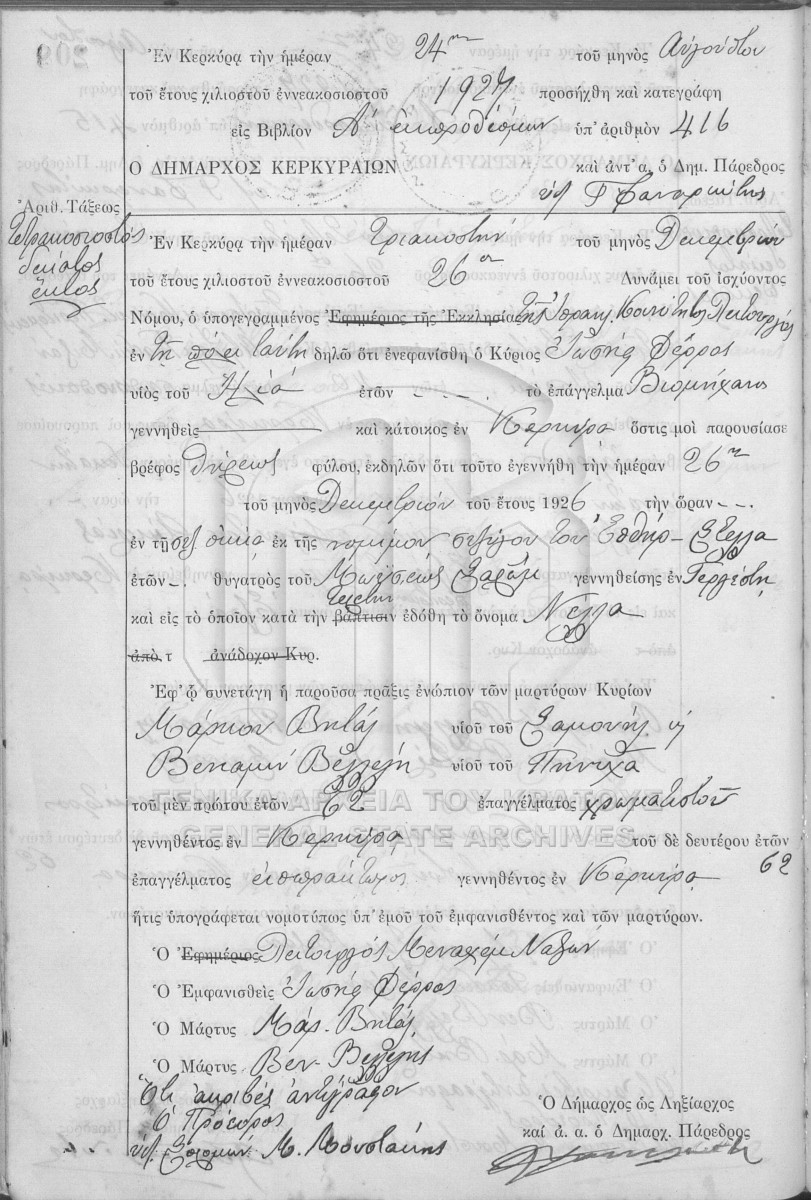 Ἐν Κερκύρᾳ τὴν ἡμέραν 24ην τοῦ μηνὸς Αὐγούστου
τοῦ ἔτους χιλιοστοῦ ἐννεακοσιοστοῦ 1927 προσήχθη καὶ κατεγράφη
εἰς Βιβλίον Α' ἐκπροθέσμων ὑπ' ἀριθμὸν 416
Ο ΔΗΜΑΡΧΟΣ ΚΕΡΚΥΡΑΙΩΝ καὶ ἀντ' α. ὁ Δημ. Πάρεδρος
Ἀριθ. Τάξεως
Τετρακοσιοστός
δέκατος
ἕκτος
Ἐν Κερκύρᾳ τὴν ἡμέραν τριακοστήν τοῦ μηνὸς Δεκεμβρίου
τοῦ ἔτους χιλιοστοῦ ἐννεακοσιοστοῦ 26ου Δυνάμει τοῦ ἰσχύοντος
Νόμου, ὁ ὑπογεγραμμένος Ἐφημέριος τῆς Ἐκκλησίας τῆς Ἰσραηλ. Κοινότητος Λειτουργός
ἐν τῇ πόλει ταύτῃ δηλῶ ὅτι ἐνεφανίσθη ὁ Κύριος Ἰωσὴφ Φέρρος
υἱὸς τοῦ Ἠλία ἐτῶν - - - . τὸ ἐπάγγελμα Βιομήχανος
γεννηθεὶς καὶ κάτοικος ἐν Κερκύρᾳ ὅστις μοὶ παρουσίασε
βρέφος θήλεως φύλου, ἐκδηλῶν ὅτι τοῦτο ἐγεννήθη τὴν ἡμέραν 26ην
τοῦ μηνὸς Δεκεμβρίου τοῦ ἔτους 1926 τὴν ὥραν - - .
ἐν τῇ οἰκίᾳ ἐκ τῆς νομίμου συζύγου του Ἐσθήρ - Στέλλα
ἐτῶν - . θυγατρὸς τοῦ Μωυσέως γεννηθείσης ἐν Τεργέστῃ
τελετὴν
καὶ εἰς τὸ ὁποῖον κατὰ τὴν βάπτισιν ἐδόθη τὸ ὄνομα Νέλλα
ἀπὸ τ ἀνάδοχον Κυρ.
Ἐφ' ᾧ συνετάγη ἡ παροῦσα πρᾶξις ἐνώπιον τῶν μαρτύρων Κυρίων
Μάρκου Βητάλ υἱοῦ τοῦ Σαμουήλ
Βενιαμὴν Βελλέλη υἱοῦ τοῦ
τοῦ μὲν πρώτου ἐτῶν 62 ἐπαγγέλματος χρωματιστοῦ
ΓΕΝΙΚΑ ΑΡΧΕΙΑ ΤΟΥ ΚΡΑΤΟΥΣ
GENERAL STATE ARCHIVES
γεννηθέντος ἐν Κερκύρᾳ τοῦ δὲ δευτέρου ἐτῶν 62
ἐπαγγέλματος εἰσπράκτορος γεννηθέντος ἐν Κερκύρᾳ
ἥτις ὑπογράφεται νομοτύπως ὑπ' ἐμοῦ τοῦ ἐμφανισθέντος καὶ τῶν μαρτύρων.
Ὁ Ἐφημέριος Λειτουργός Μεναχὲμ
Ὁ Ἐμφανισθεὶς Ἰωσὴφ Φέρρος
Ὁ Μάρτυς Μάρ. Βητάλ
Ὁ Μάρτυς Βεν. Βελλέλης
Ὅτι ἀκριβὲς ἀντίγραφον
Ὁ Πρόεδρος
Μ. Μουστάκης
Ὁ Δήμαρχος ὡς Ληξίαρχος
καὶ ἀ. α. ὁ Δημαρχ. Πάρεδρος